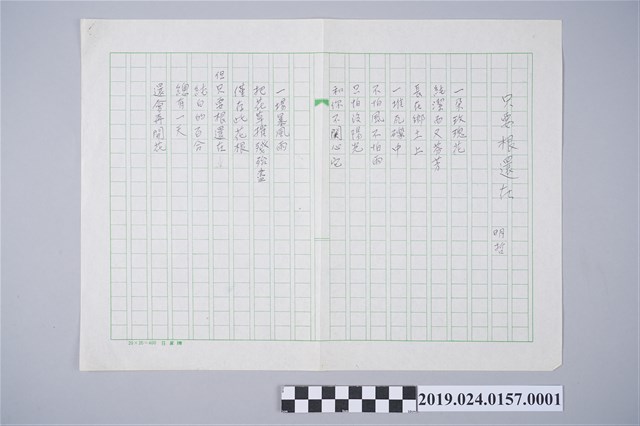 只要根還在
明哲
一朵玫瑰花
純潔而又芬芳
長在鄉土上
一堆瓦礫中
不怕風不怕雨
只怕沒陽光
和你不關心它
一場暴風雨
把花草摧殘
僅存此花根
但只要根還在
純白的百合
總有一天
還會再開花
20×20=400
2019.024.0157.0001